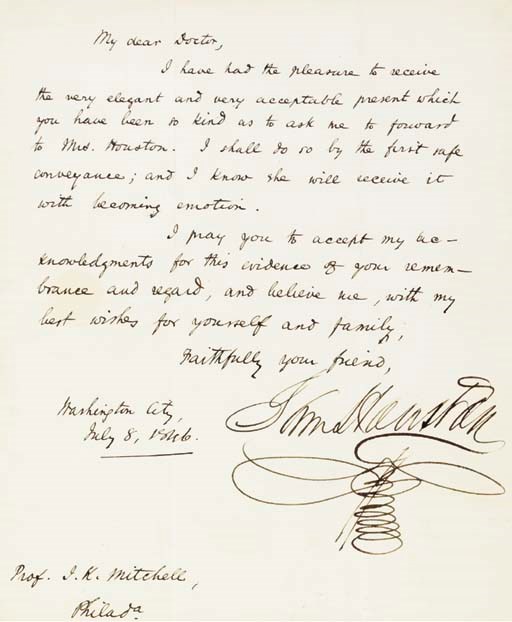 My dear Doctor,
I have had the pleasure to receive
the very elegant and very acceptable present which
you have been so kind as to ask me to forward
to Mrs. Houston. I shall do so by the first safe
conveyance; and I know she will receive it
with becoming emotion.
I pray you to accept my ac-
knowledgments for this evidence of your remem-
brance and regard, and believe me, with my
best wishes for yourself and family,
Faithfully your friend,
Sam Houston
Washington City,
July 8, 1846.
Prof. J. K. Mitchell,
Philada